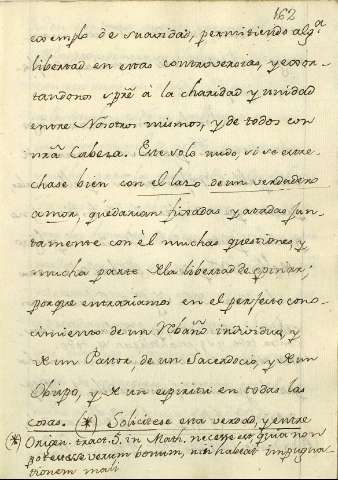 162
exemplo de suavidad, permitiendo algª
libertad en estas controversias, y exor-
tandonos sprē à la charidad y unidad
entre Nosotros mismos, y de todos con
nrã Cabeza. Este solo nudo, si se estre-
chase bien con el lazo de un verdadero
amor, quedarian fixadas y atadas jun-
tamente con èl muchas questiones, y
mucha parte de la libertad de opinar;
porque entrariamos en el perfecto cono-
cimiento de un Rebaño individuo, y
de un Pastor, de un Sacerdocio, y de un
Obispo, y de un espiritu en todas las
cosas. (*) Solicitese esta verdad, y entre
(*) Origen. tract. 5. in Math. necesse est, quia non
potensse verum bonum, nisi habeat impugna
tionem mali